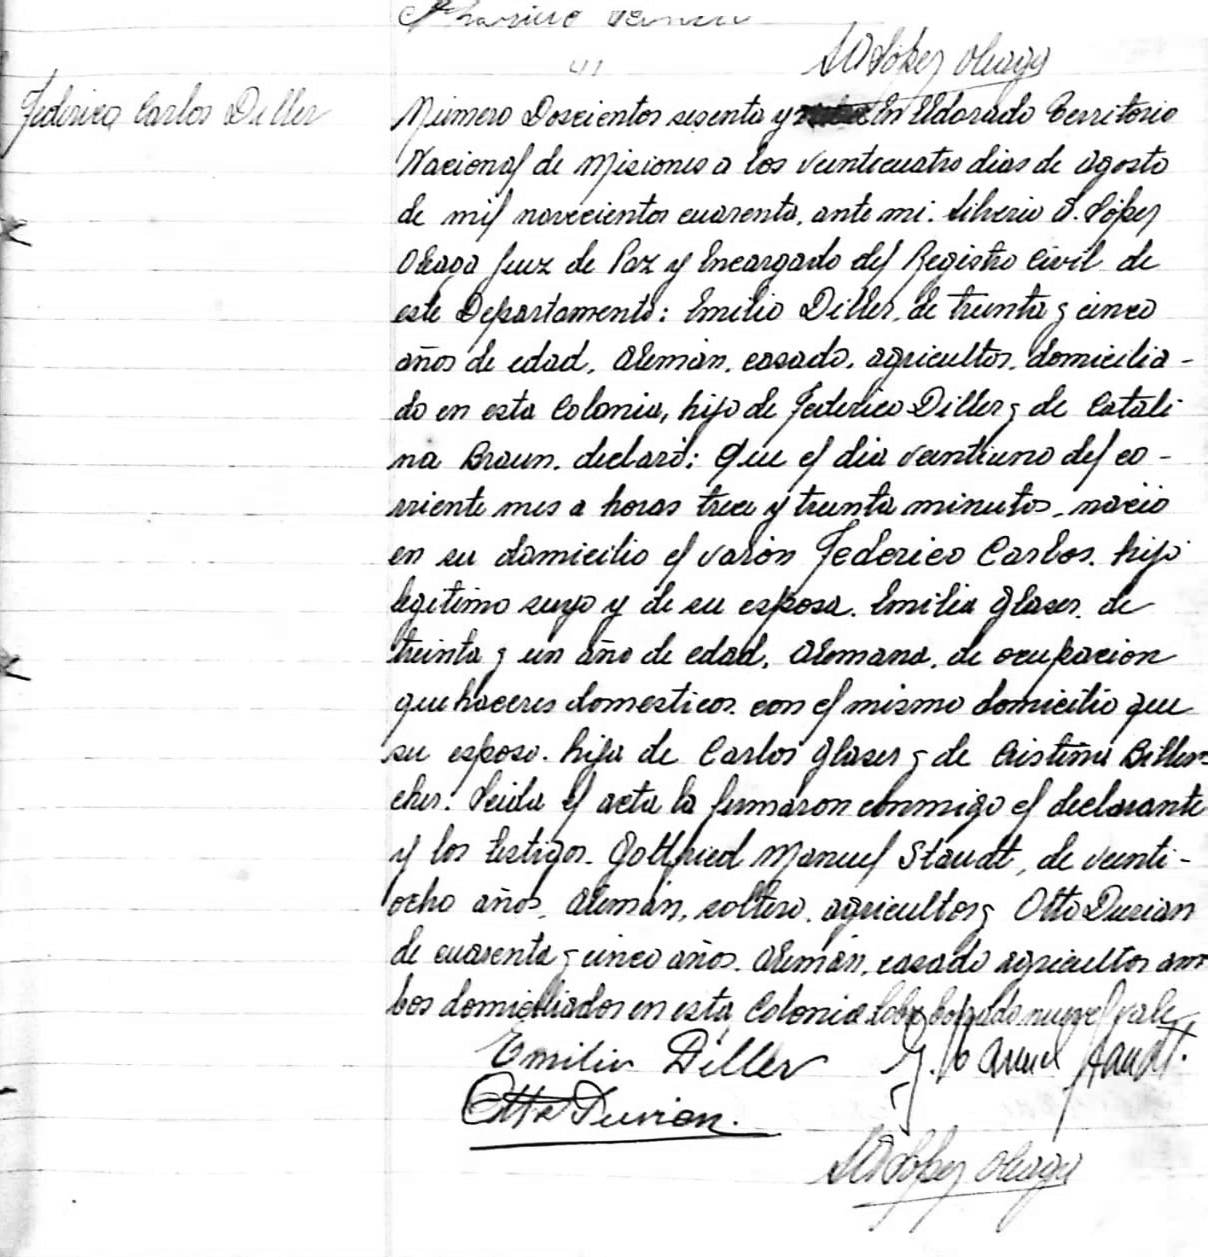 S O López Oleaga
Federico Carlos Diller
Número Doscientos sesenta y En Eldorado Territorio
Nacional de Misiones a los veinticuatro dias de Agosto
de mil novecientos cuarenta, ante mi. Silverio O. López
Oleaga Juez de Paz y Encargado del Registro Civil de
este Departamento: Emilio Diller, de treinta y cinco
años de edad, Alemán, casado, agricultor, domicilia-
do en esta Colonia, hijo de Federico Diller y de Catali
na Braun. declaró: Que el dia veintiuno del co-
rriente mes a horas trece y treinta minutos, nació
en su domicilio el varón Federico Carlos. hijo
legitimo suyo y de su esposa. Emilia Glaser. de
treinta y un año de edad, Alemana, de ocupacion
que haceres domesticos. con el mismo domicilio que
su esposo. hija de Carlos Glaser y de Cristina Biller-
cher. Leida el acta la firmaron conmigo el declarante
y los testigos. Gottfried Manuel Staudt, de veinti-
ocho años, Alemán, soltero, agricultor y Otto Durian
de cuarenta y cinco años. Alemán, casado agricultor am
bos domiciliados en esta Colonia Sobre borrado nueve/ vale
Emilio Diller G. Manuel Staudt.
Otto Durian.
S O López Oleaga